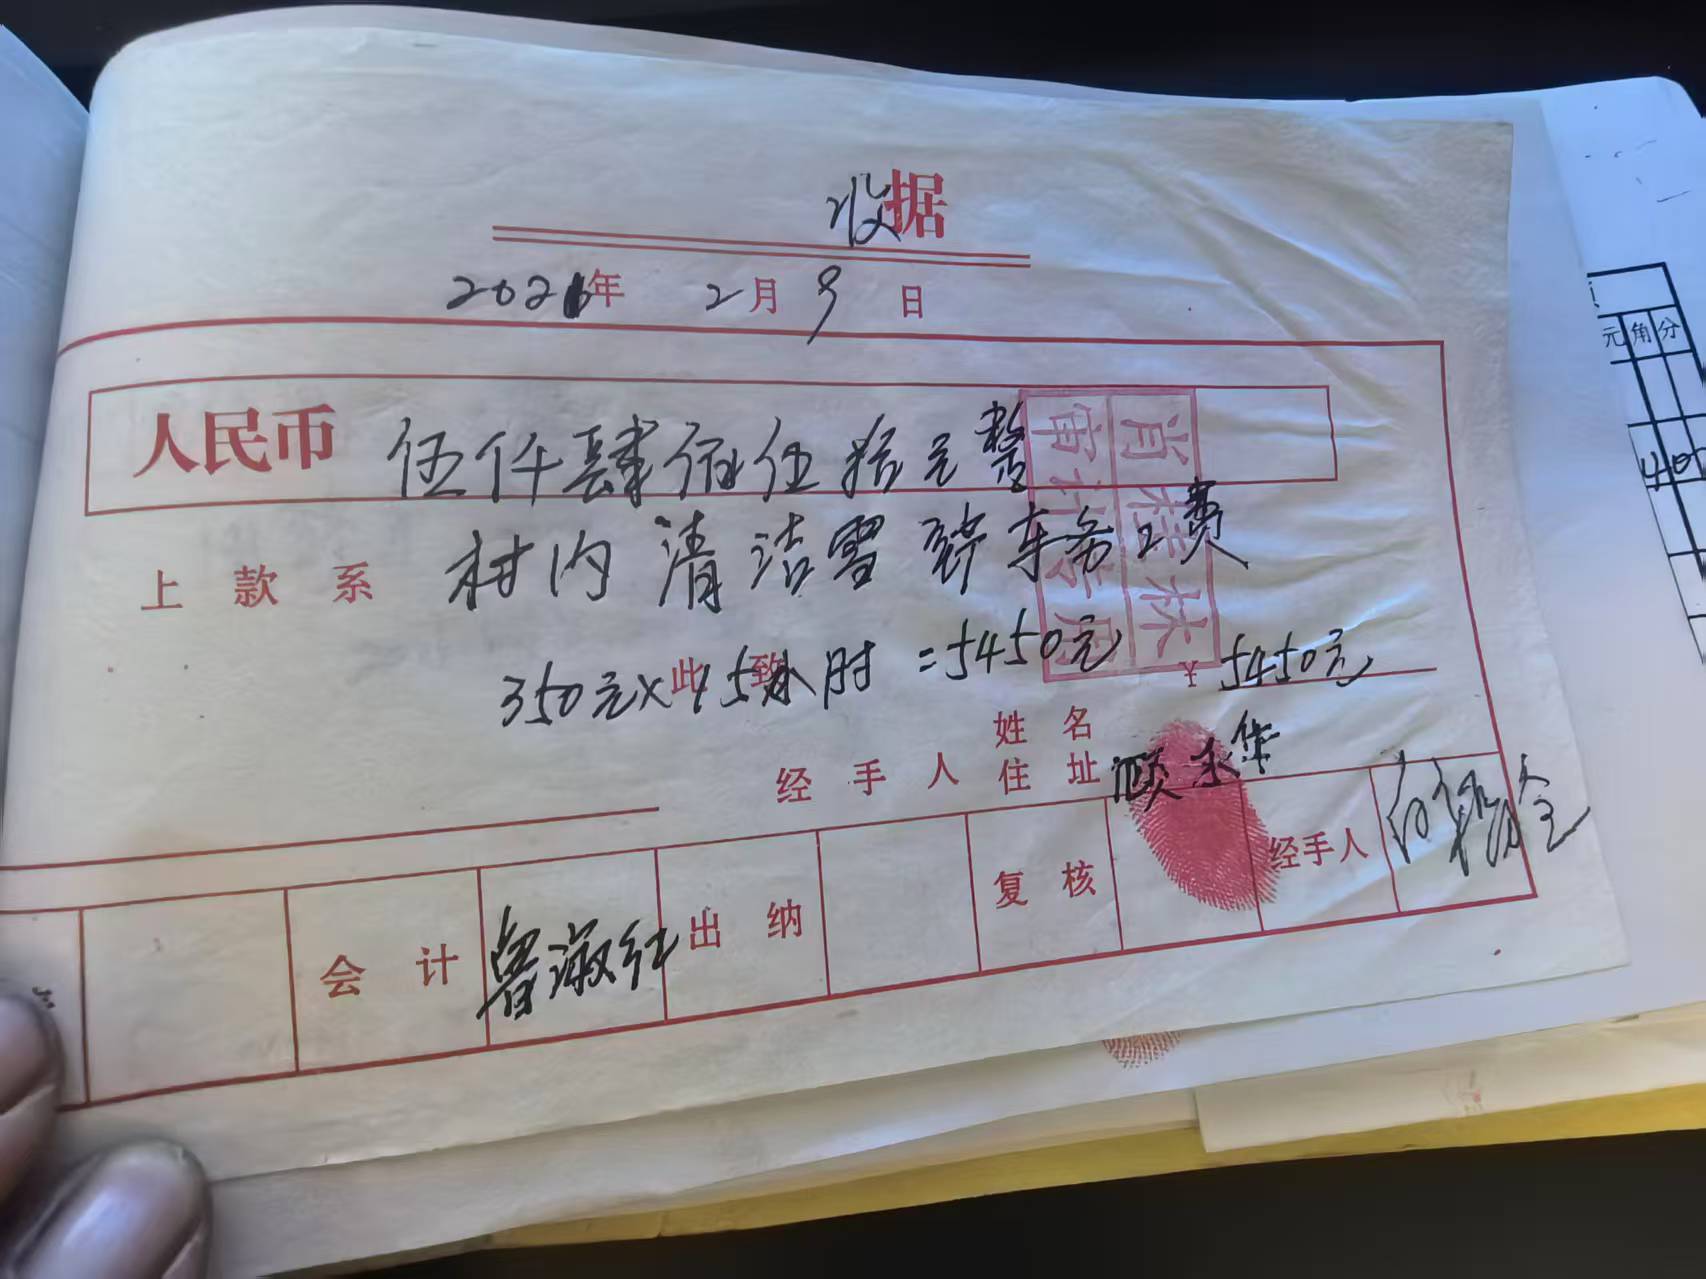 收据
202 年 2月9日
人民币 伍仟肆佰伍拾元整
上款系 村内清洁雪 车务工费
此致
350元×15小时=5450元 ¥5450元
姓名
经手人 住址 顾永华
会计 鲁淑红 出纳 复核 经手人
肖桂林
审计专用
元角分